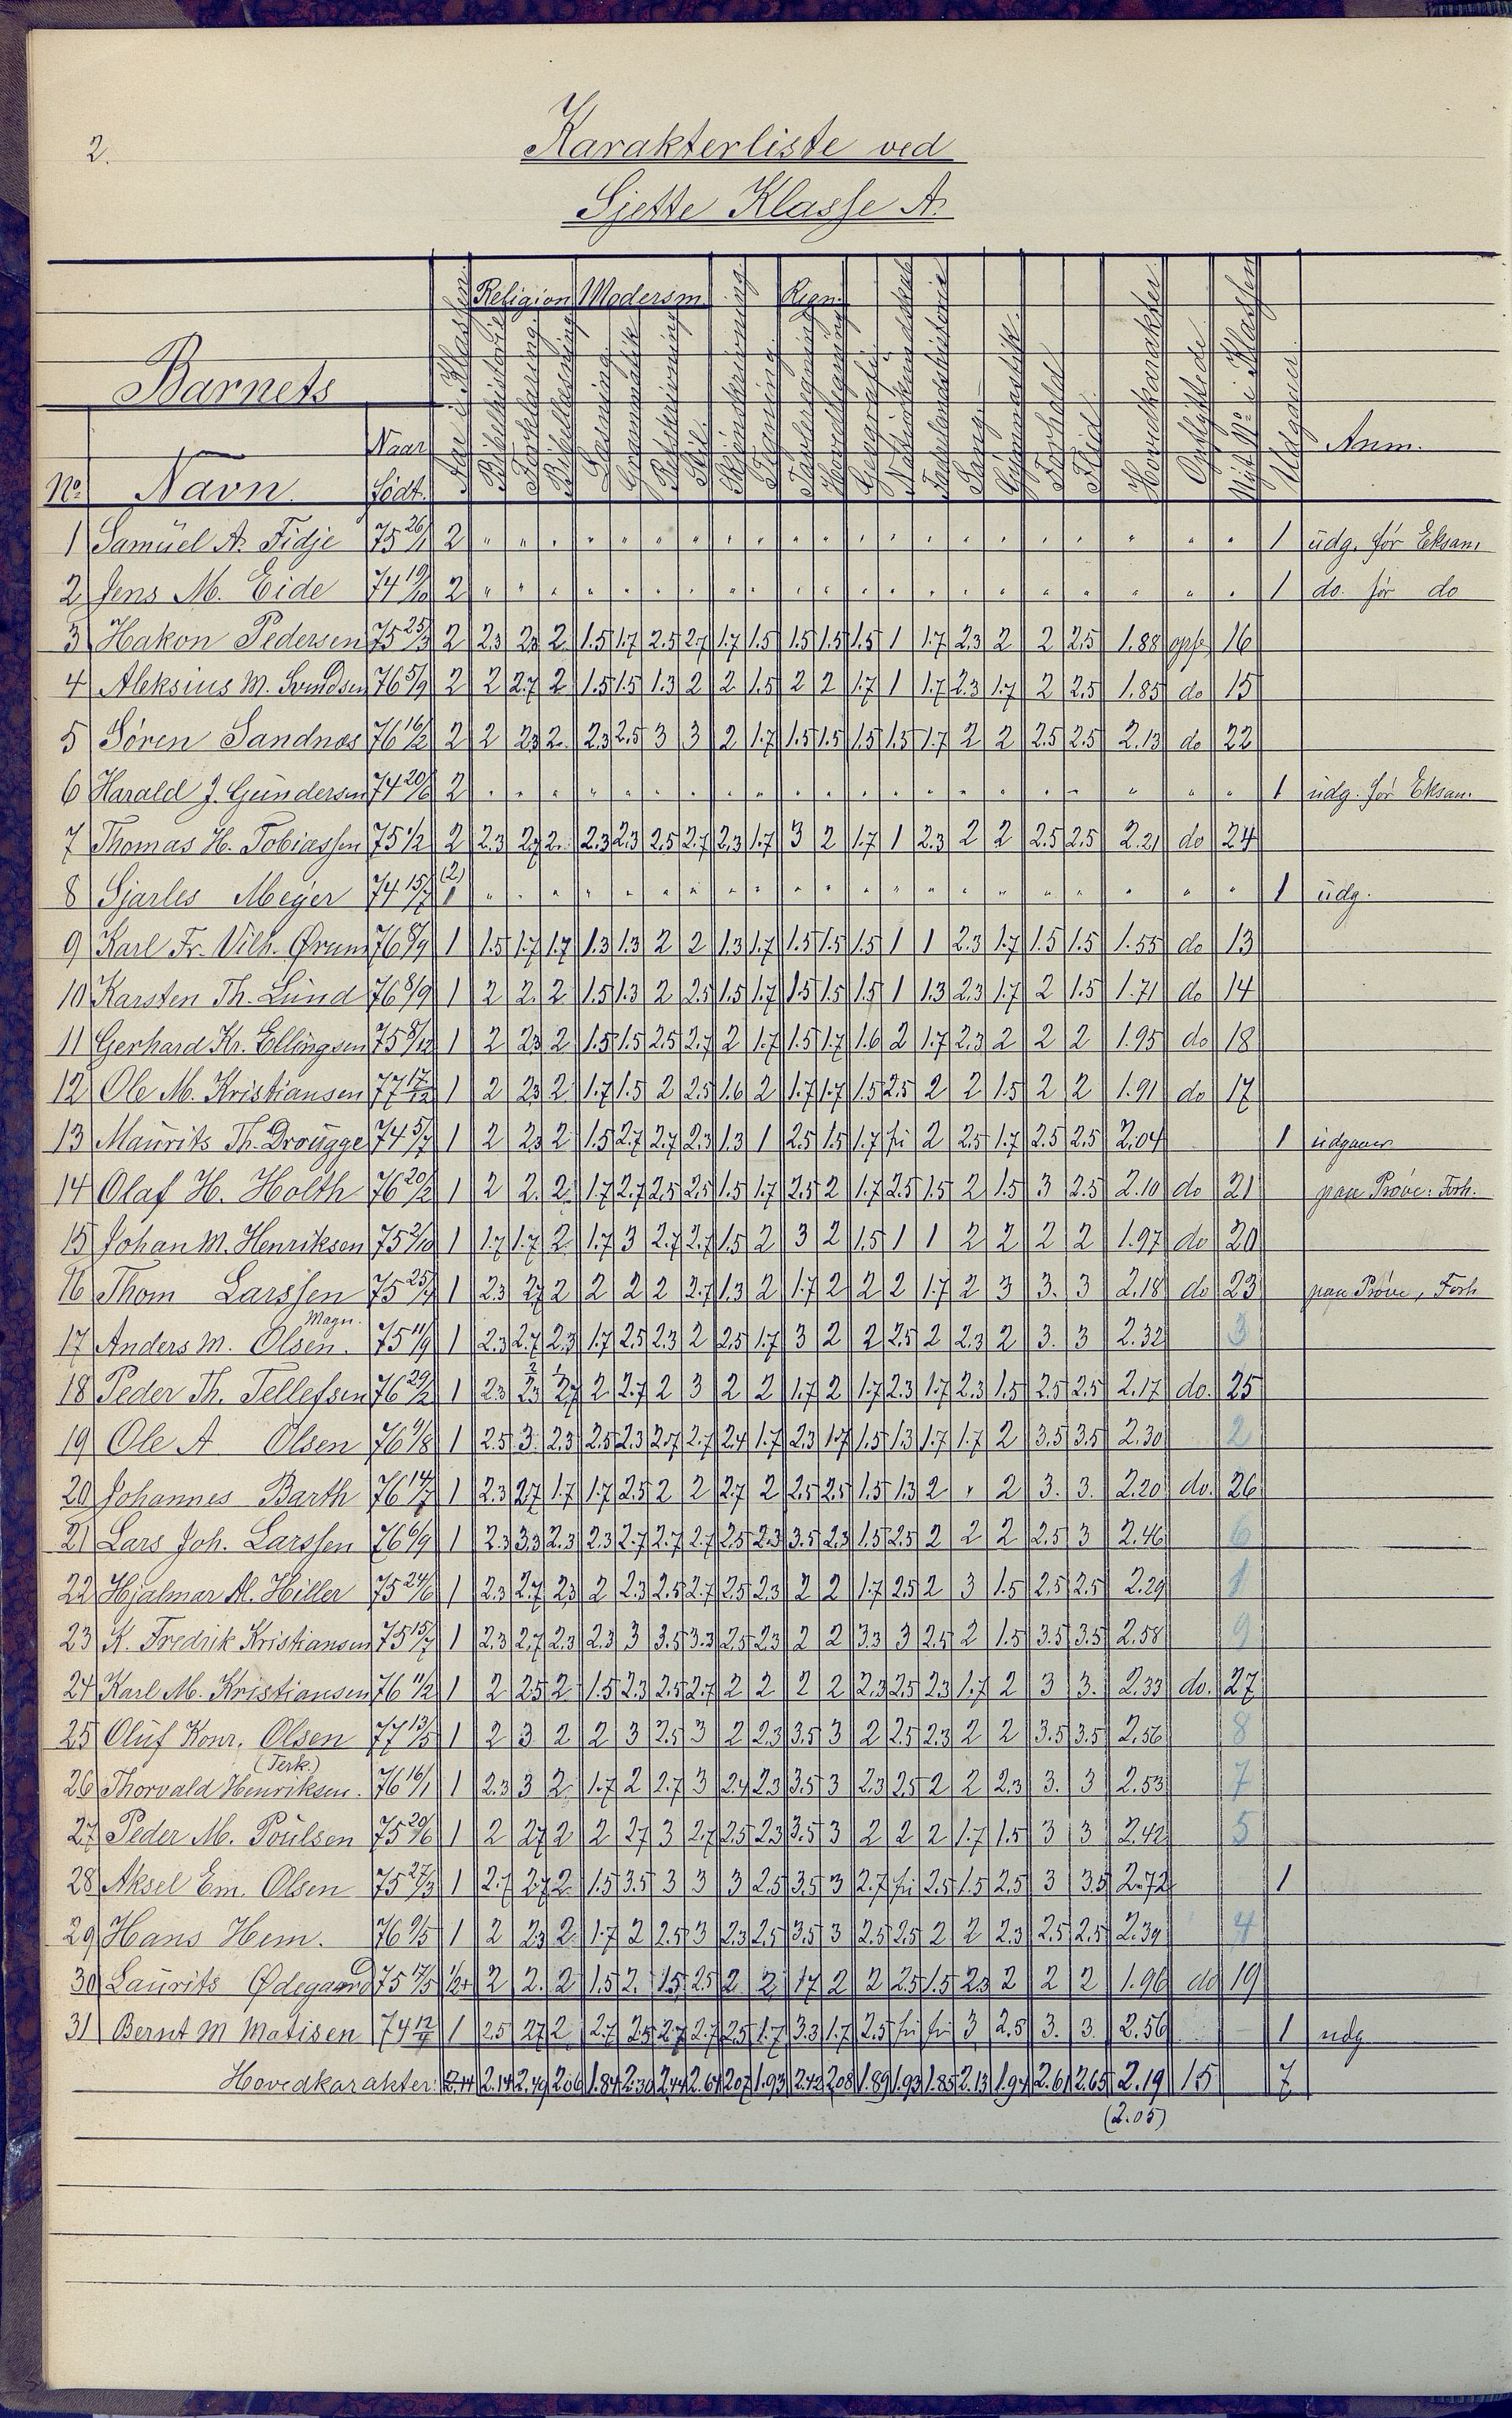 2.
Karakterliste ved
Sjette Klasse A.
Religion Modersm. Regn.
Barnets
Aar i Klassen. Bibelhistorie Forklaring. Bibellæsning Læsning. Grammatik Retskrivning Stil. Skjønskrivning. Tegning. Tavleregning Hovedregning Geografi. Naturkundskab Fædrelandshistorie Sang. Gymnastik. Forhold Flid. Hovedkarakter. Opflyttede. Nyt No i Klassen Udgaaer. Anm.
No. Navn. Naar født.
1 Samuel A. Fidje 75 26/1 2 " " " " " " " " " " " " " " " " " " " " " 1 udg. før Eksam.
2 Jens M. Eide 74 19/10 2 " " " " " " " " " " " " " " " " " " " " " 1 do. før do
3 Hakon Pedersen 75 25/3 2 2.3 2.3 2. 1.5 1.7 2.5 2.7 1.7 1.5 1.5 1.5 1.5 1 1.7 2.3 2 2 2.5 1.88 opf. 16
4 Aleksius M. Svendsen 76 5/9 2 2 2.7 2 1.5 1.5 1.3 2 2 1.5 2 2 1.7 1 1.7 2.3 1.7 2 2.5 1.85 do 15
5 Søren Sandnæs 76 16/2 2 2 2.3 2. 2.3 2.5 3 3 2 1.7 1.5 1.5 1.5 1.5 1.7 2 2 2.5 2.5 2.13 do 22
6 Harald J. Gundersen 74 20/6 2 " " " " " " " " " " " " " " " " " " " " " 1 udg. før Eksam.
7 Thomas H. Tobiassen 75 1/2 2 2.3 2.7 2. 2.3 2.3 2.5 2.7 2.3 1.7 3 2 1.7 1 2.3 2 2 2.5 2.5 2.21 do 24
8 Sjarles Meyer 74 15/7 (2) 1 " " " " " " " " " " " " " " " " " " " " " 1 udg.
9 Karl Fr. Vilh. Ørum 76 8/9 1 1.5 1.7 1.7 1.3 1.3 2 2 1.3 1.7 1.5 1.5 1.5 1 1 2.3 1.7 1.5 1.5 1.55 do 13
10 Karsten Th. Lund 76 8/9 1 2 2. 2 1.5 1.3 2 2.5 1.5 1.7 1.5 1.5 1.5 1 1.3 2.3 1.7 2 1.5 1.71 do 14
11 Gerhard Kr. Ellingsen 75 8/12 1 2 2.3 2 1.5 1.5 2.5 2.7 2 1.7 1.5 1.7 1.6 2 1.7 2.3 2 2 2 1.95 do 18
12 Ole M. Kristiansen 77 17/12 1 2 2.3 2 1.7 1.5 2 2.5 1.6 2 1.7 1.7 1.5 2.5 2 2 1.5 2 2 1.91 do 17
13 Maurits Th. Drougge 74 5/7 1 2 2.3 2 1.5 2.7 2.7 2.3 1.3 1 2.5 1.5 1.7 fri 2 2.5 1.7 2.5 2.5 2.04 1 udgaaer
14 Olaf H. Holth 76 20/2 1 2 2. 2. 1.7 2.7 2.5 2.5 1.5 1.7 2.5 2 1.7 2.5 1.5 2 1.5 3 2.5 2.10 do 21 paa Prøve. Forh.
15 Johan M. Henriksen 75 2/10 1 1.7 1.7 2 1.7 3 2.7 2.7 1.5 2 3 2 1.5 1 1 2 2 2 2 1.97 do 20
16 Thom Larssen 75 25/7 1 2.3 2.7 2 2 2 2 2.7 1.3 2 1.7 2 2 2 1.7 2 3 3. 3 2.18 do 23 paa Prøve, Forh
Magn.
17 Anders M. Olsen. 75 11/9 1 2.3 2.7 2.3 1.7 2.5 2.3 2 2.5 1.7 3 2 2 2.5 2 2.3 2 3. 3 2.32 3
2 1
18 Peder Th. Tellefsen 76 29/2 1 2.3 2.3 2.7 2 2.7 2 3 2 2 1.7 2 1.7 2.3 1.7 2.3 1.5 2.5 2.5 2.17 do. 25
19 Ole A Olsen 76 9/8 1 2.5 3. 2.3 2.5 2.3 2.7 2.7 2.4 1.7 2.3 1.7 1.5 1.3 1.7 1.7 2 3.5 3.5 2.30 2
20 Johannes Barth 76 14/7 1 2.3 2.7 1.7 1.7 2.5 2 2 2.7 2 2.5 2.5 1.5 1.3 2 " 2 3. 3. 2.20 do. 26
21 Lars Joh. Larssen 76 6/9 1 2.3 3.3 2.3 2.3 2.7 2.7 2.7 2.5 2.3 3.5 2.3 1.5 2.5 2 2 2 2.5 3 2.46 6
22 Hjalmar M. Hiller 75 24/6 1 2.3 2.7 2.3 2 2.3 2.5 2.7 2.5 2.3 2 2 1.7 2.5 2 3 1.5 2.5 2.5 2.29 1
23 K. Fredrik Kristiansen 75 15/7 1 2.3 2.7 2.3 2.3 3 3.5 3.3 2.5 2.3 2 2 3.3 3 2.5 2 1.5 3.5 3.5 2.58 9
24 Karl M. Kristiansen 76 11/2 1 2 2.5 2 1.5 2.3 2.5 2.7 2 2 2 2 2.3 2.5 2.3 1.7 2 3 3. 2.33 do. 27
25 Oluf Konr. Olsen 77 13/5 1 2 3 2 2 3 2.5 3 2 2.3 3.5 3 2 2.5 2.3 2 2 3.5 3.5 2.56 8
(Terk.)
26 Thorvald Henriksen. 76 16/1 1 2.3 3 2 1.7 2 2.7 3 2.4 2.3 3.5 3 2.3 2.5 2 2 2.3 3. 3 2.53 7
27 Peder M. Poulsen 75 20/6 1 2 2.7 2 2 2.7 3 2.7 2.5 2.3 3.5 3 2 2 2 1.7 1.5 3 3 2.42 5
28 Aksel Em. Olsen 75 27/3 1 2.7 2.7 2 1.5 3.5 3 3 3 2.5 3.5 3 2.7 fri 2.5 1.5 2.5 3 3.5 2.72 1
29 Hans Hem. 76 9/5 1 2 2.3 2 1.7 2 2.5 3 2.3 2.5 3.5 3 2.5 2.5 2 2 2.3 2.5 2.5 2.39 4
30 Laurits Ødegaard 75 17/5 1/2+ 2 2. 2 1.5 2. 1.5 2.5 2 2 1.7 2 2 2.5 1.5 2.3 2 2 2 1.96 do 19
31 Bernt M Matisen 74 12/7 1 2.5 2.7 2 2.7 2.5 2.7 2.7 2.5 1.7 3.3 1.7 2.5 fri fri 3 2.5 3. 3. 2.56 1 udg
Hovedkarakter: 2.14 2.14 2.49 2.06 1.84 2.30 2.44 2.64 2.07 1.93 2.42 2.08 1.89 1.93 1.85 2.13 1.94 2.61 2.65 2.19 15 7
(2.05)